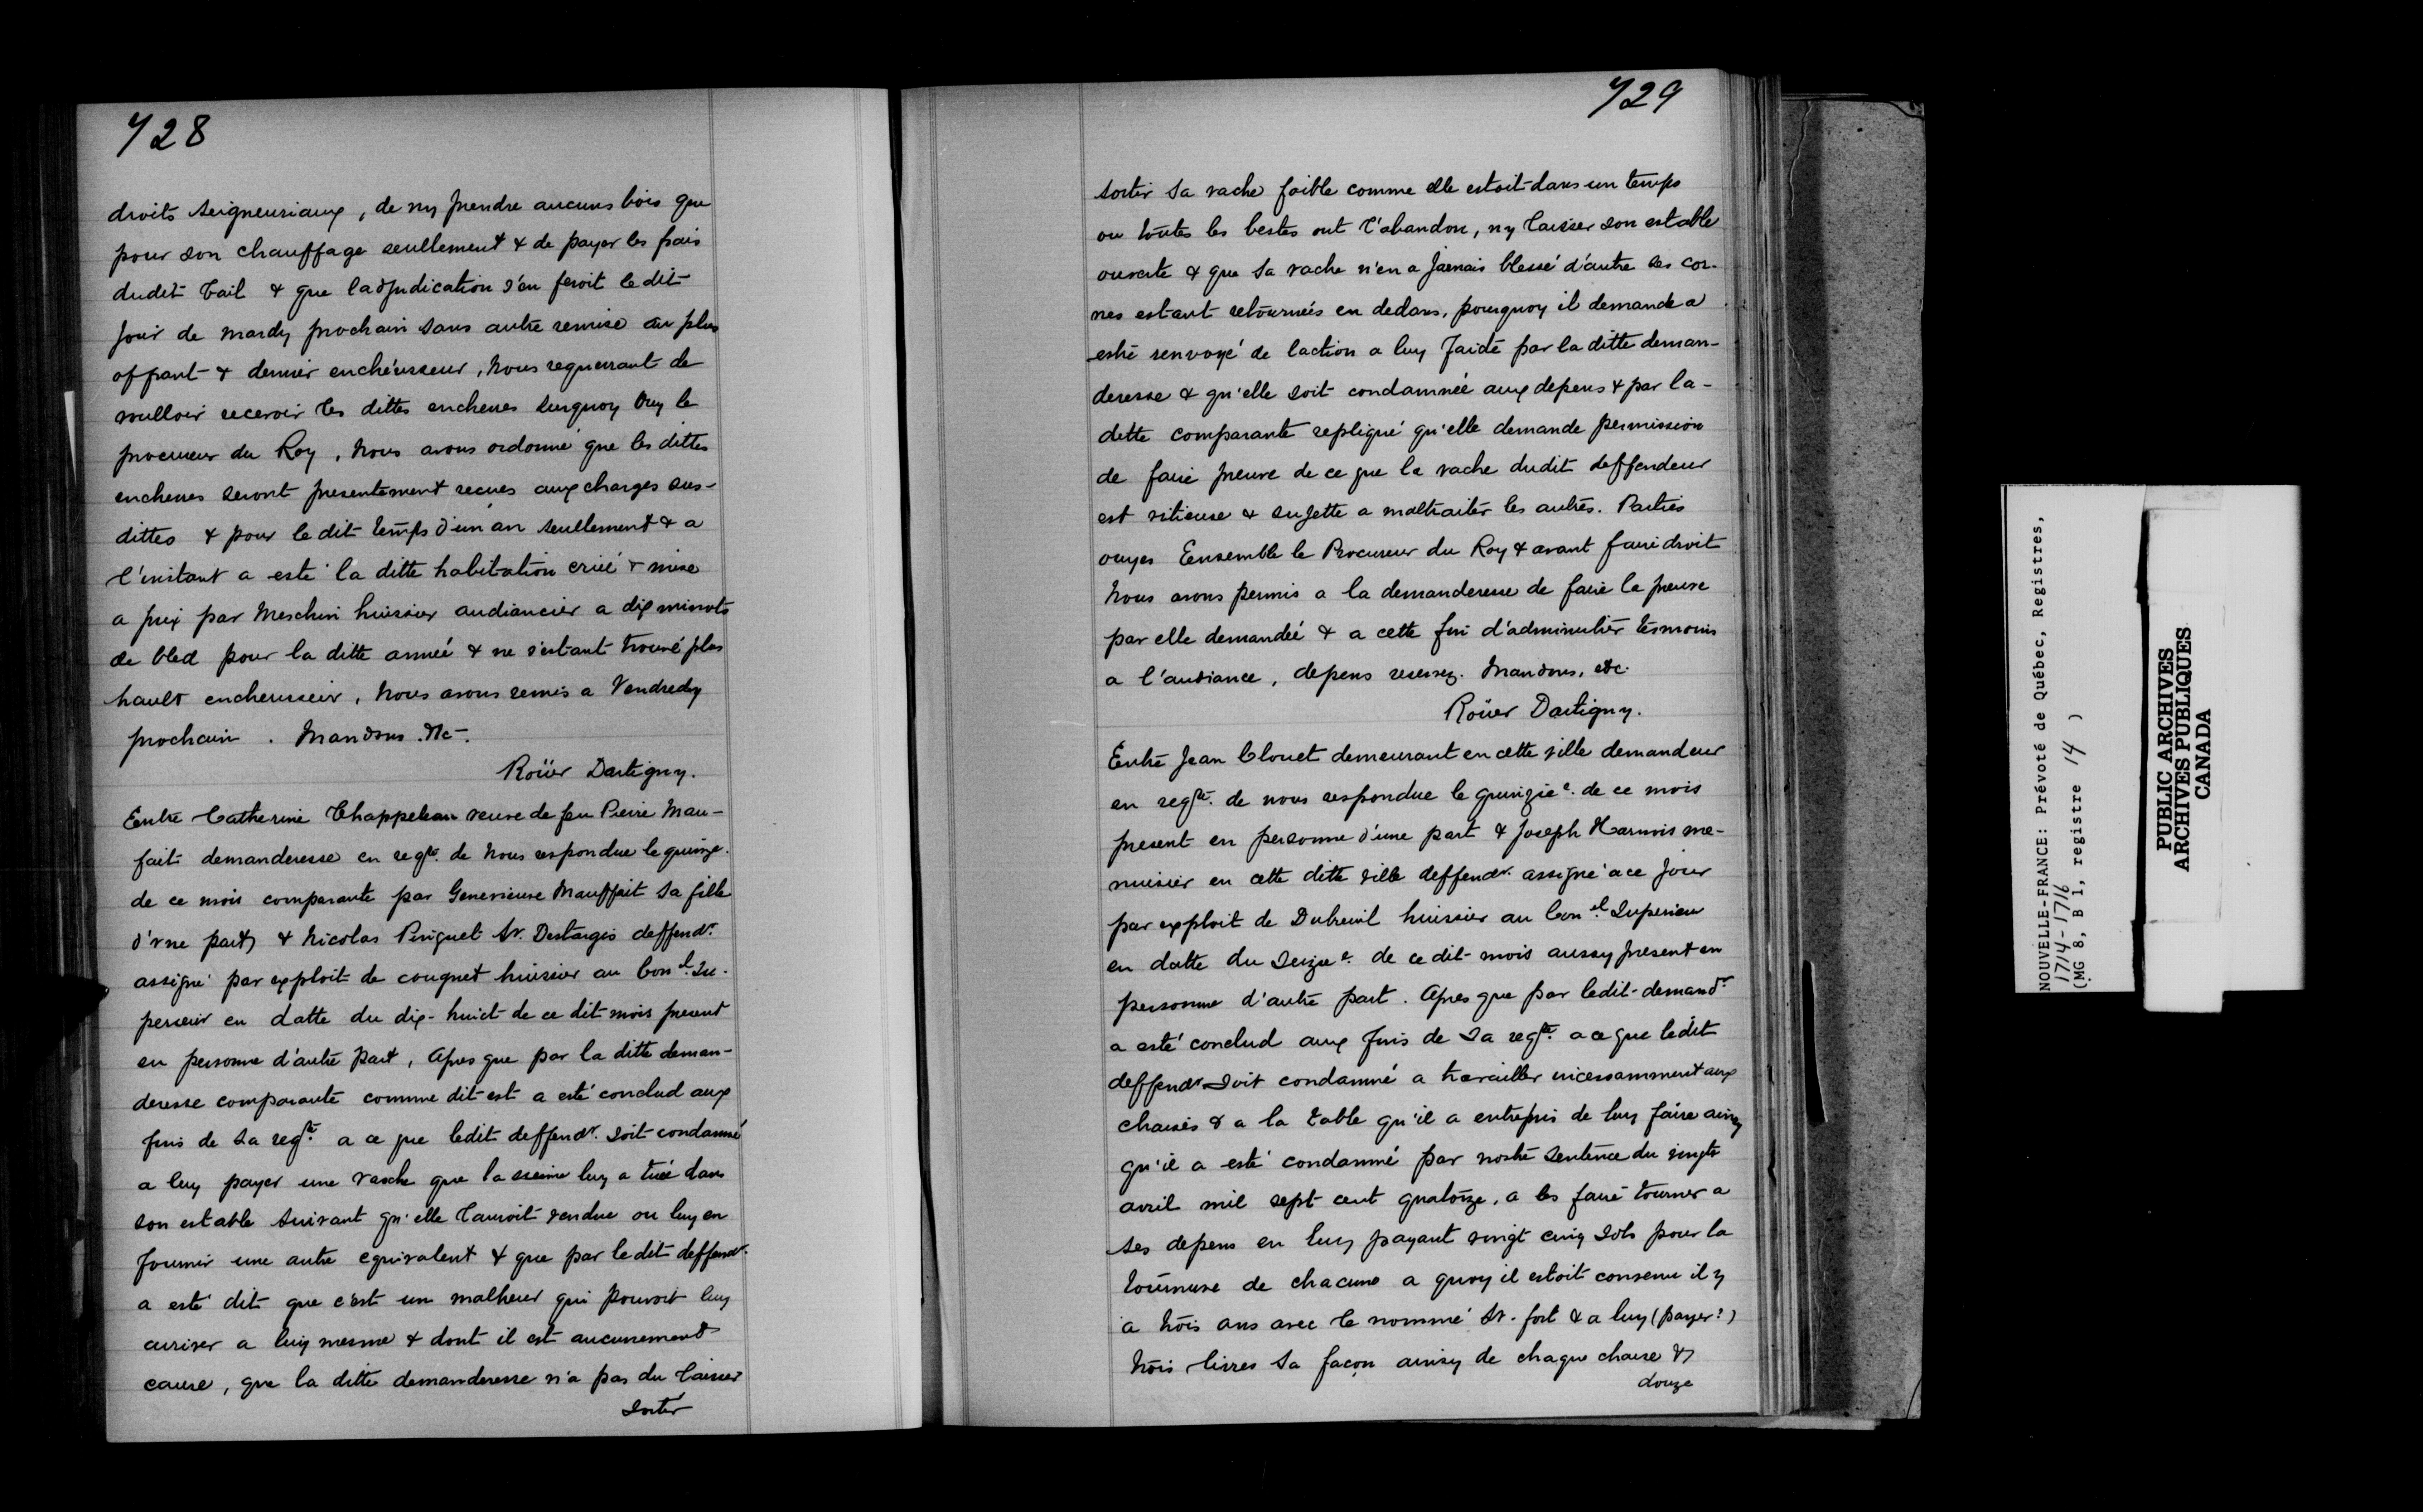 728
droits seigneuriaux, de ny prendre aucuns bois que
pour son chauffage seullement & de payer les frais
dudit bail & que ladjudication s'en feroit le dit
jour de mardy prochain sans autre remise au plus
offrant & dernier enchérisseur, nous requerrant de
voulloir recevoir les dittes encheres surquoy Ouy le
procureur du Roy, nous avons ordonné que les dittes
encheres seront presentement recues aux charges sus-
dittes & pour le dit temps d'un an seullement & a
l'instant a esté la ditte habitation criée & mise
a prix par Meschin huissier audiancier a dix minots
de bled pour la ditte année & ne s'estant trouvé plus
hault encherisseur, nous avons remis a Vendredy
prochain. Mandons &c.
Roüer Dartigny.
Entre Catherine Chappeleau veuve de feu Pierre Mau-
fait demanderesse en reqte. de nous respondue le quinze.
de ce mois comparante par Genevieuve Mauffait sa fille
d'vne part, & Nicolas Pinguet Sr. Destargis deffendr.
assigné par exploit de couquet huissier au Conel. Su-
perieur en datte du dix-huict de ce dit mois present
en personne d'autre part, Apres que par la ditte deman-
deresse comparante comme dit est a esté conclud aux
fins de sa reqte. a ce que ledit deffendr. soit condamné
a luy payer une vache que la sienne luy a tuée dans
son estable suivant qu'elle l'auroit vendue ou luy en
fournir une autre equivalent & que par le dit deffendr.
a esté dit que c'est un malheur qui pouvoit luy
arriver a luy mesme & dont il est aucunement
cause, que la ditte demanderesse n'a pas du laisser
sortir
729
sortir sa vache foible comme elle estoit dans un temps
ou toutes les bestes ont l'abandon, ny laisser son estable
ouverte & que sa vache n'en a jamais blessé d'autre ses cor-
nes estant retournées en dedans, pourquoy il demande a
estre renvoyé de laction a luy faide par la ditte deman-
deresse & qu'elle soit condamnée aux depens & par la-
dette comparante repliqué qu'elle demande permission
de faire preuve de ce que la vache dudit deffendeur
est vitieuse & sujette a maltraiter les autres. Parties
ouyes Eensemble le Procureur du Roy & avant faire droit
nous avons permis a la demanderesse de faire la preuve
par elle demandée & a cette fin d'adminutrer tesmoins
a l'audiance, depens reservez. Mandons, etc.
Roüer Dartigny.
Entre Jean Clouet demeurant en cette ville demandeur
en reqte. de nous respondue le quinzie e. de ce mois
present en personne d'une part & Joseph Harnois me-
nuisier en cette ditte ville deffendr. assigné a ce jour
par exploit de Dubreuil huissier au Conel. Superieur
en datte du Seizie e. de ce dit mois aussy present en
personne d'autre part. Apres que par ledit demandr.
a esté conclud aux fins de sa reqte. a ce que ledit
deffendr soit condamné a travailler incessamment aux
chaises & a la table qu'il a entrepris de luy faire ainsy
qu'il a esté condamné par nostre sentence du vingte
avril mil sept cent quatorze, a les faire tourner a
ses depens en luy payant vingt cinq sols pour la
tournure de chacune a quoy il estoit convenu il y
a trois ans avec le nommé Sr. fort & a luy (payer?)
trois livres sa façon ainsy de chaque chaise &
douze
NOUVELLE-FRANCE: Prévoté de Québec, Registres,
1714-1716
(MG 8, B 1, registre 14 )
PUBLIC ARCHIVES
ARCHIVES PUBLIQUES
CANADA